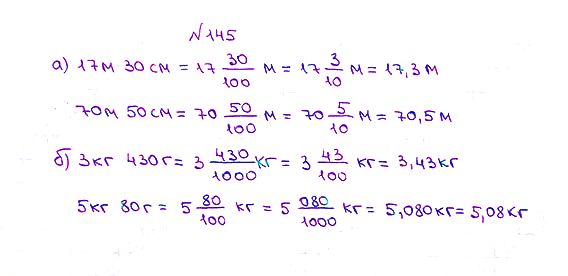 №145
а) 17м 30см = 17 30/100 м = 17 3/10 м = 17,3 м
70м 50см = 70 50/100 м = 70 5/10 м = 70,5 м
б) 3кг 430г = 3 430/1000 кг = 3 43/100 кг = 3,43кг
5кг 80г = 5 80/100 кг = 5 080/1000 кг = 5,080кг = 5,08кг